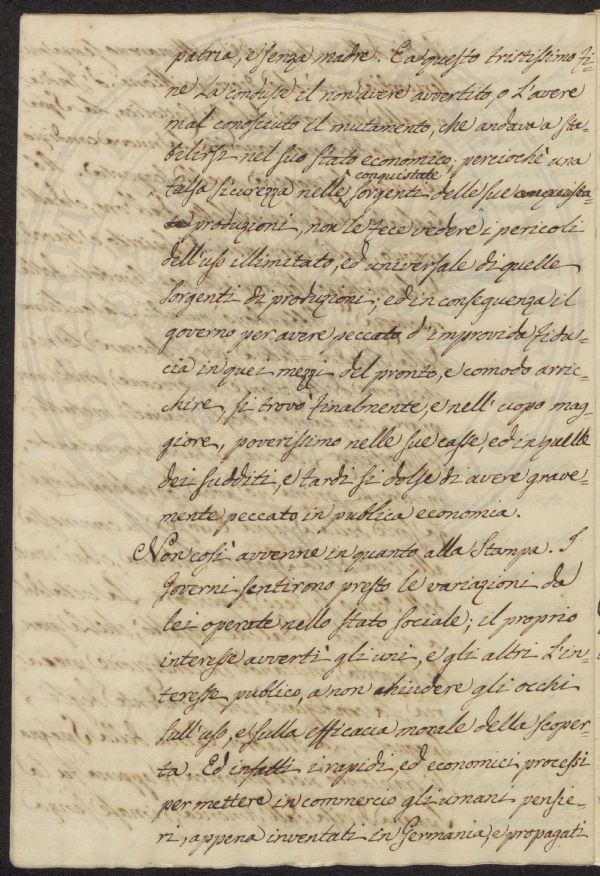 patria, e senza madre. E a questo tristissimo fi=
ne la condusse il non avere avvertito, o l'avere
mal conosciuto il mutamento, che andava a sta=
bilirsi nel suo stato economico; perciochè una
conquistate
falsa sicurezza nelle sorgenti delle sue conquista=
te produzioni, non le fece vedere i pericoli
dell'uso illimitato, ed universale di quelle
sorgenti di produzioni; ed in conseguenza il
governo per avere peccato d'improvida fidu=
cia in quei mezzi del pronto, e comodo arric=
chire, si trovò finalmente, e nell'uopo mag=
giore, poverissimo nelle sue casse, ed in quelle
dei sudditi, e tardi si dolse di avere grave=
mente peccato in publica economia.
Non così avvenne in quanto alla Stampa. I
Governi sentirono presto le variazioni da
lei operate nello stato sociale; il proprio
interesse avvertì gli uni, e gli altri l'in=
teresse publico, a non chiudere gli occhi
sull'uso, e sulla efficacia morale della scoper=
ta. Ed infatti i rapidi, ed economici processi
per mettere in commercio gli umani pensie=
ri, appena inventati in Germania, e propagati